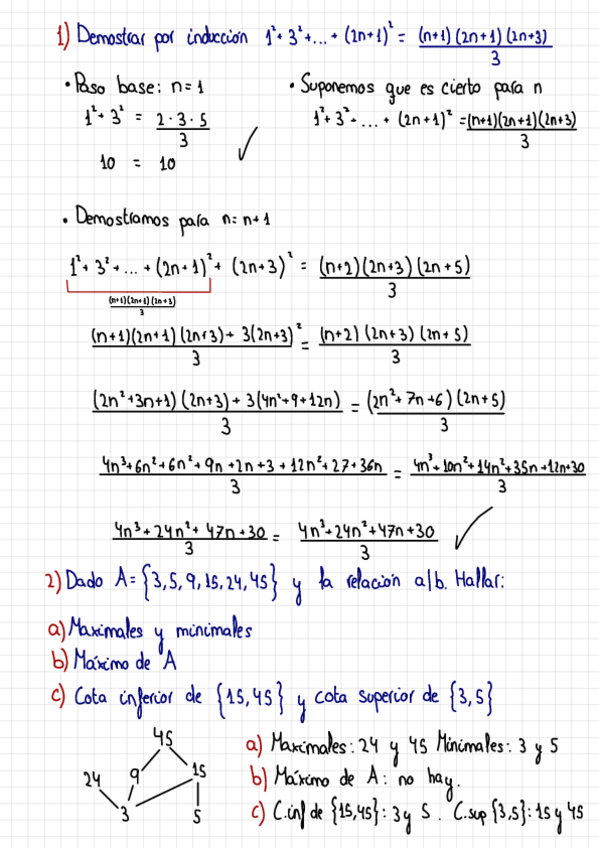 1) Demostrar por inducción 1²+3²+...+(2n+1)² = (n+1)(2n+1)(2n+3)/3
• Paso base: n=1
1²+3² = 2·3·5/3 ✓
10 = 10
• Suponemos que es cierto para n
1²+3²+...+(2n+1)² = (n+1)(2n+1)(2n+3)/3
• Demostramos para n=n+1
1²+3²+...+(2n+1)²+(2n+3)² = (n+2)(2n+3)(2n+5)/3
(n+1)(2n+1)(2n+3)/3
(n+1)(2n+1)(2n+3)+3(2n+3)²/3 = (n+2)(2n+3)(2n+5)/3
(2n²+3n+1)(2n+3)+3(4n²+9+12n)/3 = (2n²+7n+6)(2n+5)/3
4n³+6n²+6n²+9n+2n+3+12n²+27+36n/3 = 4n³+10n²+14n²+35n+12n+30/3
4n³+24n²+47n+30/3 = 4n³+24n²+47n+30/3 ✓
2) Dado A={3,5,9,15,24,45} y la relación a|b. Hallar:
a) Maximales y minimales
b) Máximo de A
c) Cota inferior de {15,45} y cota superior de {3,5}
45
24 9 15
3 5
a) Maximales: 24 y 45 Minimales: 3 y 5
b) Máximo de A: no hay.
c) C.inf de {15,45}: 3 y 5. C.sup {3,5}: 15 y 45